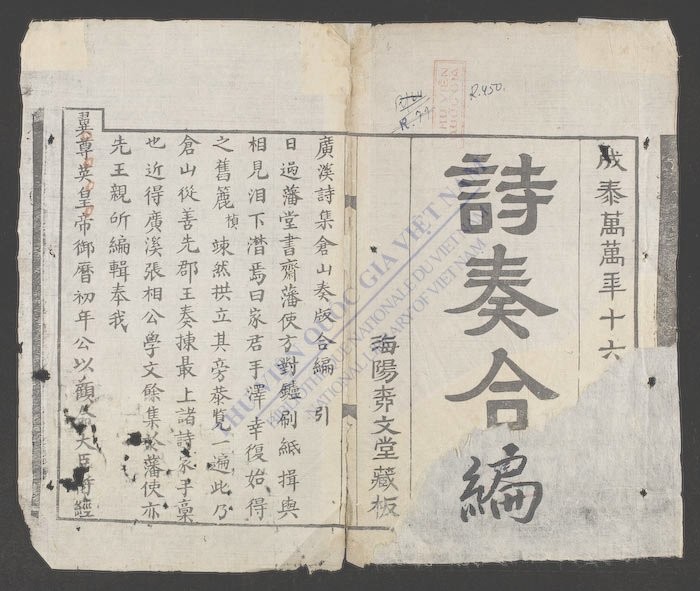 成泰萬萬年十六
詩奏合編
海陽文堂藏板
廣溪詩集倉山奏版合編引
日過藩堂書齋藩使方對鑪刷紙揖與
相見泪下潸焉曰家君手澤幸復始得
之舊簏楨竦然拱立其旁恭覧一遍此乃
倉山從善先郡王奏揀最上諸詩家手稾
也近得廣溪張相公學文餘集於藩使亦
先王親所編輯奉我
翼尊英皇帝御曆初年公以顧大臣時經
THƯ VIỆN
QUỐC GIA
R.450
THƯ VIỆN QUỐC GIA VIỆT NAM
BIBLIOTHÈQUE NATIONALE DU VIETNAM
NATIONAL LIBRARY OF VIETNAM